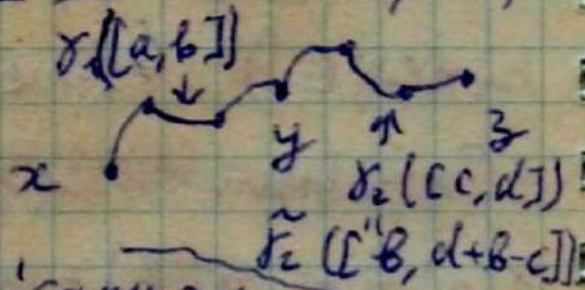 γ₁([a,b])
x y z
γ₂([c,d])
"
γ̃₂([b, d+b-c])